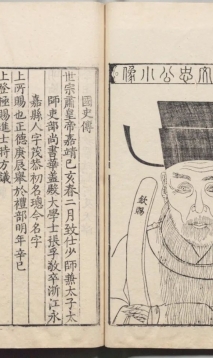 文忠公小像
欽賜
國史傳
世宗肅皇帝嘉靖己亥春二月致仕少師兼太子太
師吏部尚書華蓋殿大學士張孚敬卒浙江永
嘉縣人字茂恭初名璁今名字
上所賜也正德庚辰舉於禮部明年辛巳
上登極賜進士時方議